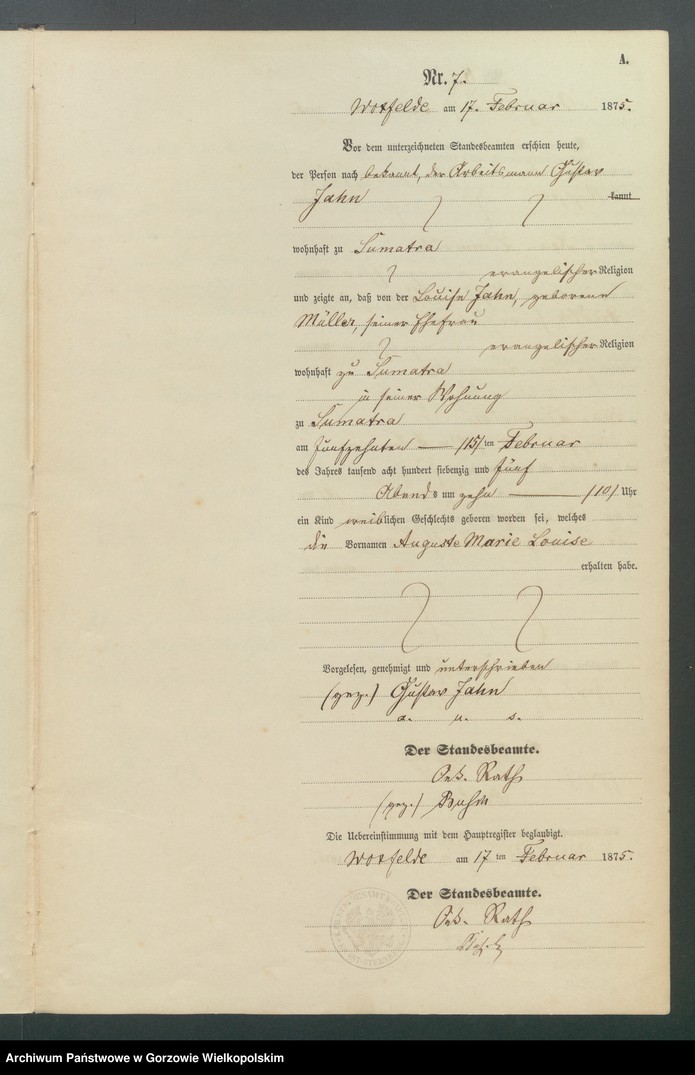 A.
Nr. 7.
Woxfelde am 17. Februar 1875.
Vor dem unterzeichneten Standesbeamten erschien heute,
der Person nach bekannt, der Arbeitsmann Gustav
Jahn kannt
wohnhaft zu Sumatra
evangelischer Religion
und zeigte an, daß von der Louise Jahn, geborenen
Müller, seiner Ehefrau
evangelischer Religion
wohnhaft zu Sumatra
in seiner Wohnung
zu Sumatra
am fünfzehnten /15/ ten Februar
des Jahres tausend acht hundert siebenzig und fünf
Abends um zehn /10/ Uhr
ein Kind weiblichen Geschlechts geboren worden sei, welches
die Vornamen Auguste Marie Louise
erhalten habe.
Vorgelesen, genehmigt und unterschrieben
(gez.) Gustav Jahn
a. u. s.
Der Standesbeamte.
Oek. Rath
(gez.)
Die Uebereinstimmung mit dem Hauptregister beglaubigt.
Woxfelde am 17 ten Februar 1875.
Der Standesbeamte.
Oek. Rath
Archiwum Państwowe w Gorzowie Wielkopolskim